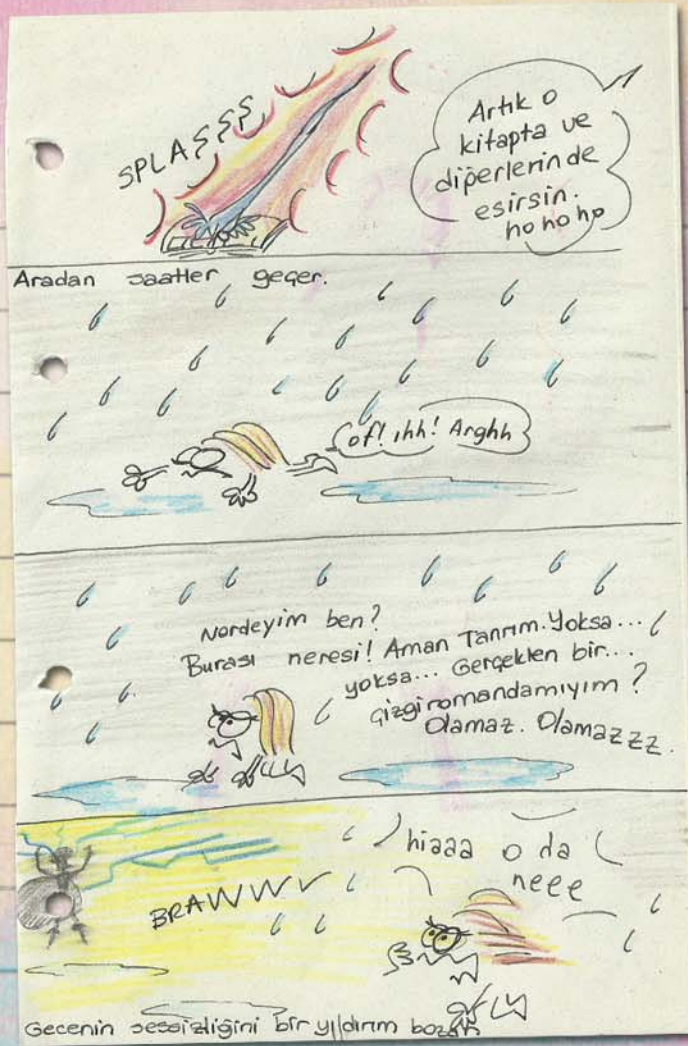 SPLAŞŞŞ
Artık o
kitapta ve
diğerlerinde
esirsin.
ho ho ho
Aradan saatler geçer.
of! ıhh! Arghh
Nerdeyim ben?
Burası neresi! Aman Tanrım. Yoksa...
yoksa... Gerçekten bir...
çizgiromandamıyım?
Olamaz. Olamazzz.
hiaaa o da
neee
BRAWWV
Gecenin sessizliğini bir yıldırım bozar.